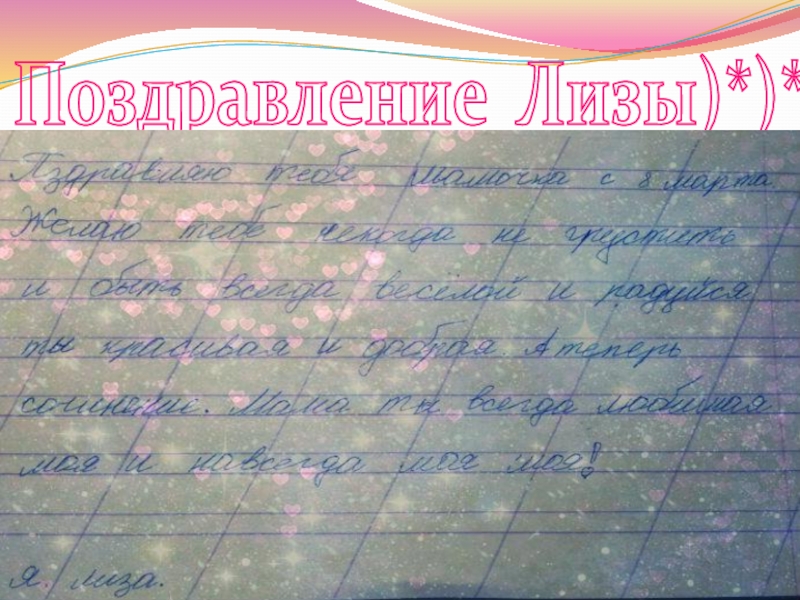 Поздравление Лизы)*)*
Пздравляю тебе мамочка с 8 марта
Желаю тебе некогда не грустить
и быть всегда весёлой и радуйся
ты красивая и добрая. А теперь
сочинение. Мама ты всегда любимая
моя и навсегда моя моя!
Я. лиза.